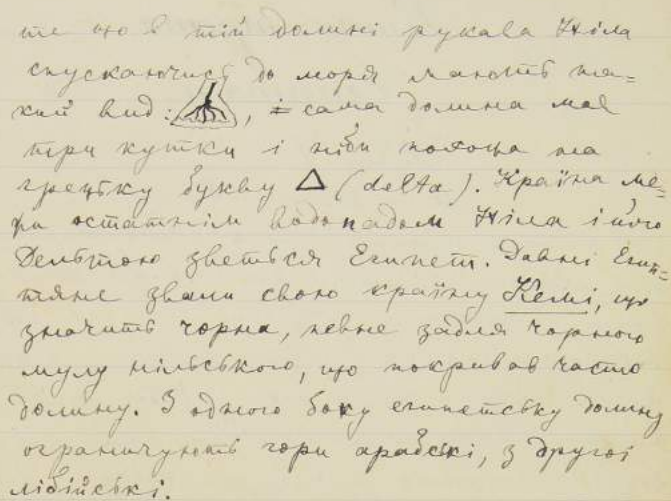 те що в тій долині рукава Ніла
спускаючись до моря мають та-
кий вид: , і сама долина має
три кутки і ніби похожа на
грецьку букву Δ (delta). Країна ме-
жи остатнім водопадом Ніла і його
Дельтою зветься Египет. Давні Егип-
тяне звали свою країну Кемі, що
значить чорна, певне задля чорного
мулу нільського, що покривав часто
долину. З одного боку египетську долину
ограничують гори арабські, з другої
лібійські.